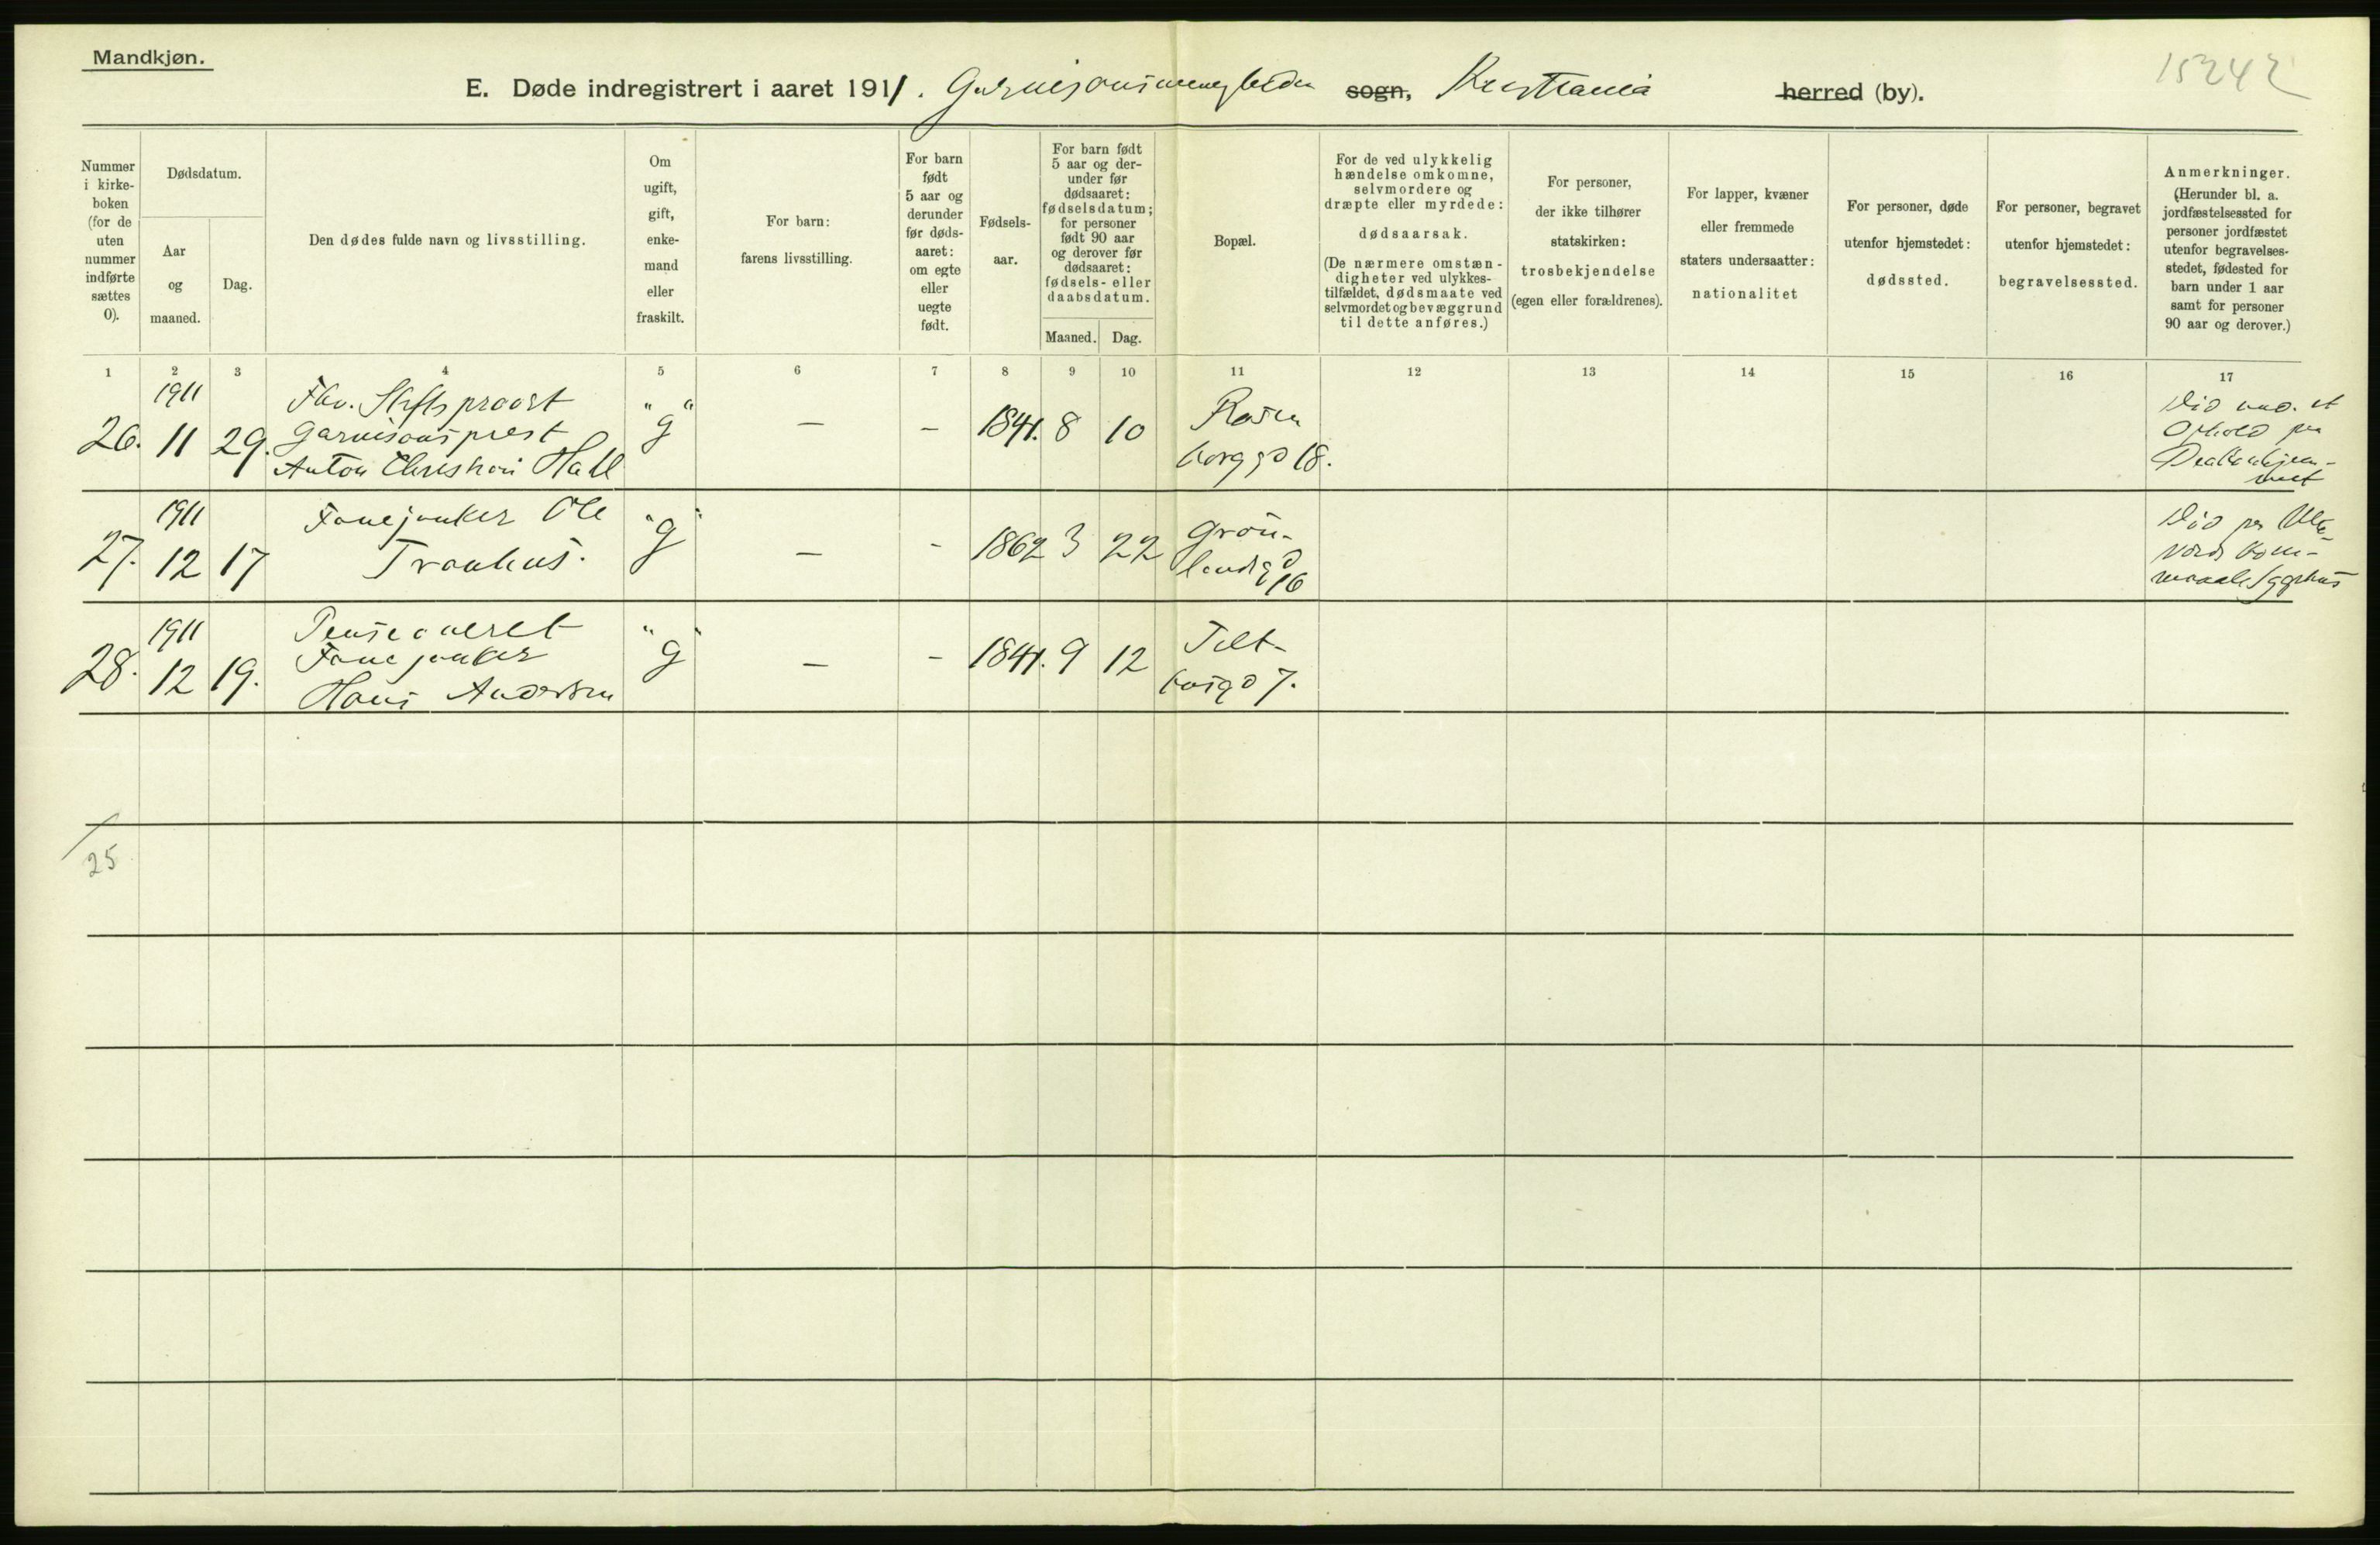 Mandkjøn.
15242
E. Døde indregistrert i aaret 1911. Garnisonsmenigheden sogn, Kristiania herred (by).
Nummer i kirke-boken (for de uten nummer indførte sættes 0).
Dødsdatum.
Aar og maaned.
Dag.
Den dødes fulde navn og livsstilling.
Om ugift, gift, enke-mand eller fraskilt.
For barn: farens livsstilling.
For barn født 5 aar og derunder før døds-aaret: om egte eller uegte født.
Fødsels-aar.
For barn født 5 aar og der-under før dødsaaret: fødselsdatum; for personer født 90 aar og derover før dødsaaret: fødsels- eller daabsdatum.
Maaned. Dag.
Bopæl.
For de ved ulykkelig hændelse omkomne, selvmordere og dræpte eller myrdede: dødsaarsak. (De nærmere omstæn-digheter ved ulykkes-tilfældet, dødsmaate ved selvmordet og bevæggrund til dette anføres.)
For personer, der ikke tilhører statskirken: trosbekjendelse (egen eller forældrenes).
For lapper, kvæner eller fremmede staters undersaatter: nationalitet
For personer, døde utenfor hjemstedet: dødssted.
For personer, begravet utenfor hjemstedet: begravelsessted.
Anmerkninger. (Herunder bl. a. jordfæstelsessted for personer jordfæstet utenfor begravelses-stedet, fødested for barn under 1 aar samt for personer 90 aar og derover.)
1 2 3 4 5 6 7 8 9 10 11 12 13 14 15 16 17
1911 Fhv. Stiftsprovst "g" Rosen Død und. et
26. 11 29. Garnisonsprest — - 1841. 8 10 Ophold paa
Anton Christian Hall borggd 18.
1911 Fanejunker Ole "g" Grön- Død paa Ulle-
27. 12 17 Tranhus. — - 1862 3 22 landsgd 16 vold kom-
munale sygehus
1911 Pensioneret "g" Telt-
28. 12 19. Fanejunker — - 1841. 9 12 husgd 7.
Hans Andersen
25